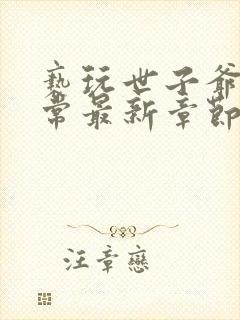 亵玩世子爷
常最新章節
汪章戀